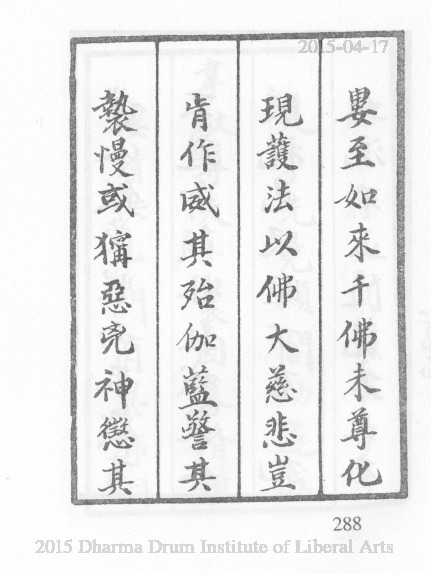 2015-04-17
婁至如來千佛末尊化
現護法以佛大慈悲豈
肯作威其殆伽藍警其
褻慢或獰惡兇神懲其
288
2015 Dharma Drum Institute of Liberal Arts